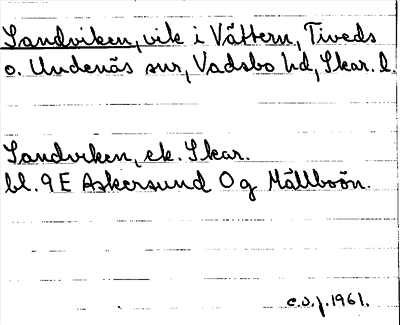 Sandviken, vik i Vättern, Tiveds
o. Undenäs snr, Vadsbo hd, Skar. l.
Sandviken, ek. Skar.
bl. 9 E Askersund O g Mällboön.
C.O.J. 1961.